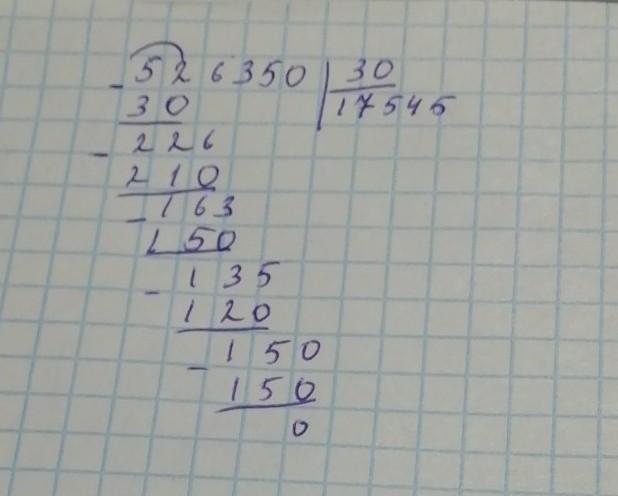 - 526350 | 30
30 17545
- 226
210
- 163
150
- 135
120
- 150
150
0